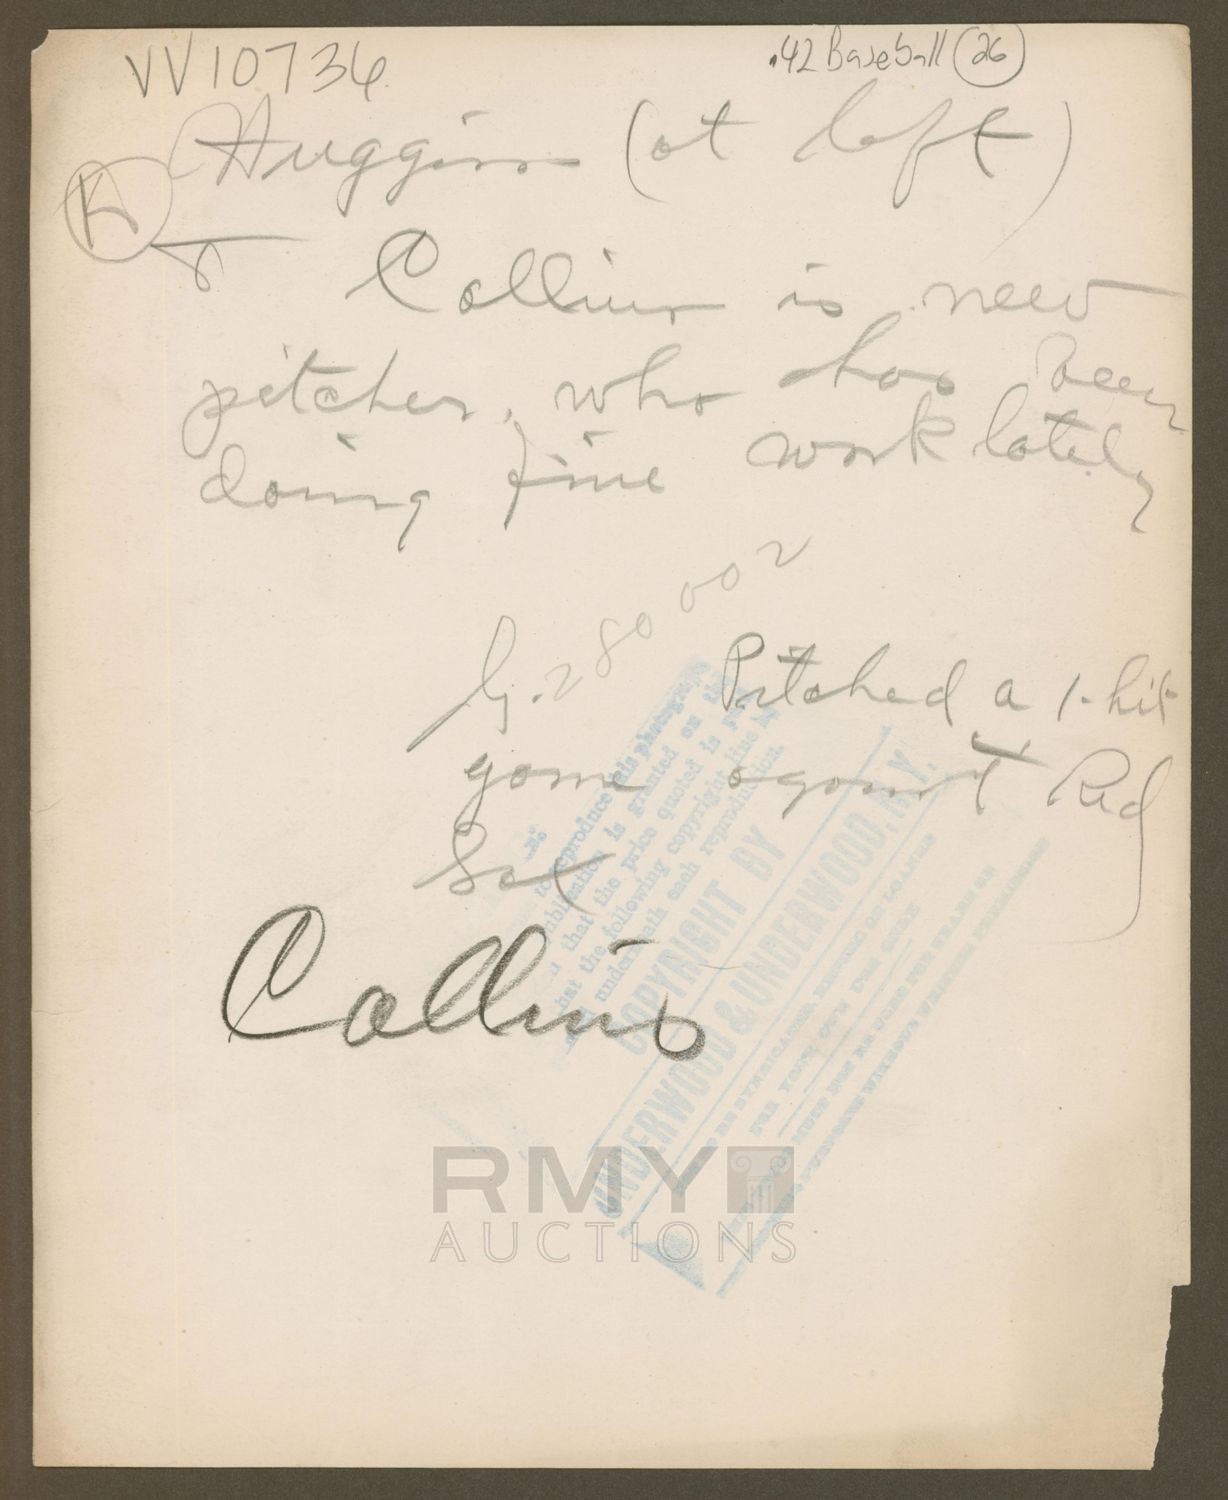 VV10736
.42 Baseball (26)
Huggins (at left)
Collins is new
pitcher, who has been
doing fine work lately
G.280002
Pitched a 1-hit
game against Red
Sox
Collins
reproduce this photograph
is granted on
that the price quoted is
that the following copyright line
underneath each reproduction.
COPYRIGHT BY
UNDERWOOD & UNDERWOOD, N.Y.
RMY
AUCTIONS